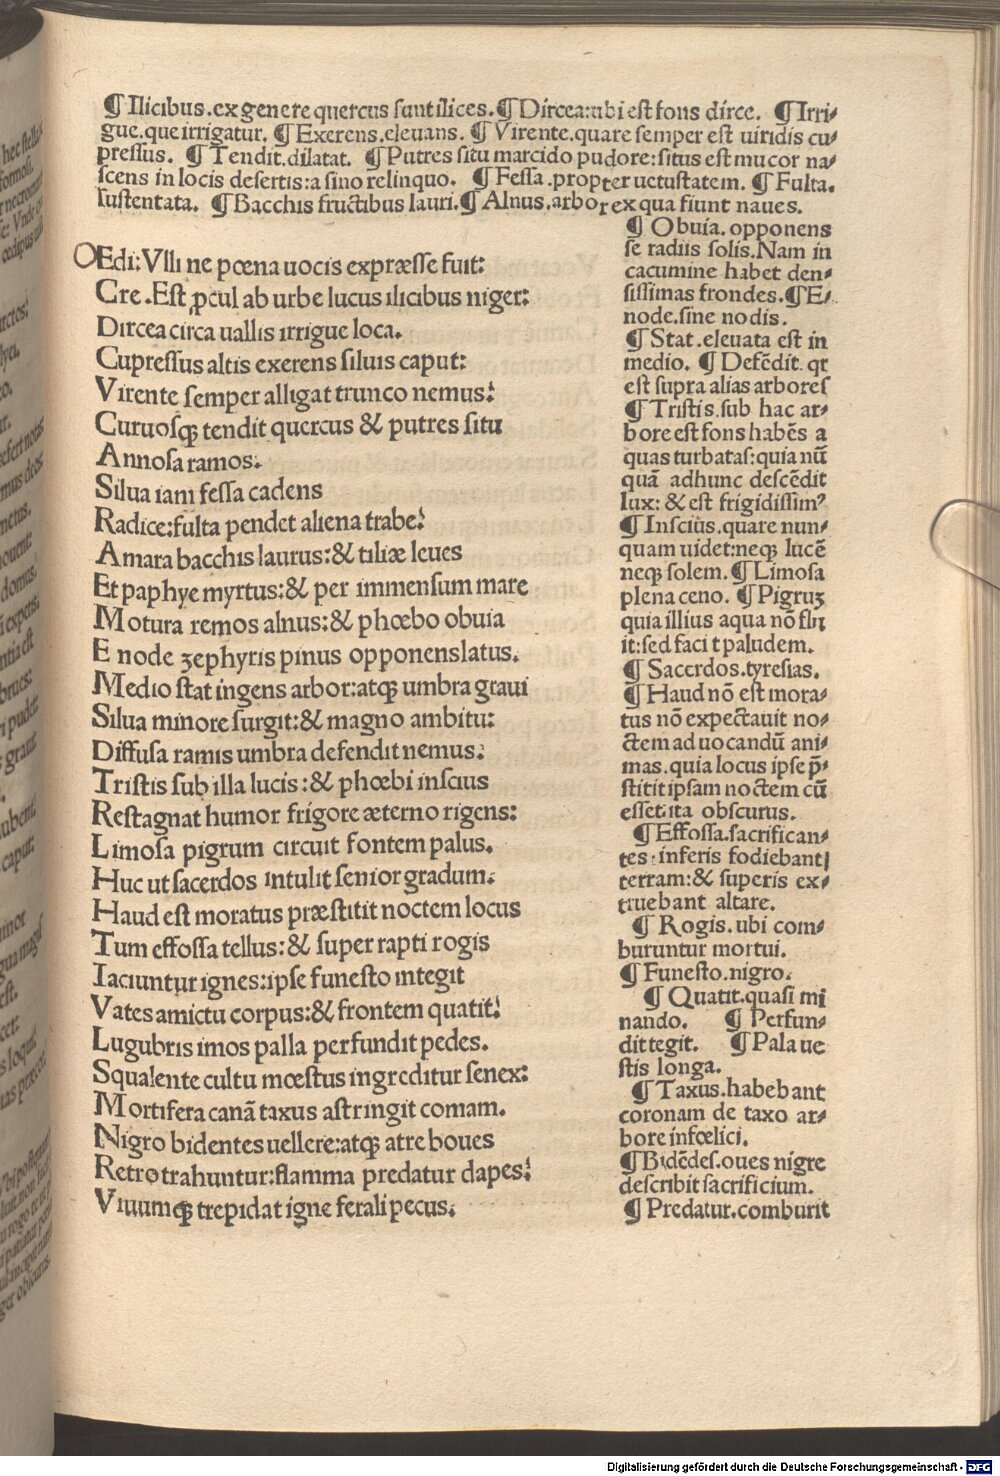 ¶ Ilicibus.ex genere quercus sunt ilices.¶ Dircea:ubi est fons dirce. ¶ Irri-
gue.que irrigatur. ¶ Exerens.eleuans. ¶ Virente.quare semper est uiridis cu-
pressus. ¶ Tendit.dilatat. ¶ Putres situ marcido pudore:situs est mucor na-
scens in locis desertis:a sino relinquo. ¶ Fessa.propter uetustatem. ¶ Fulta.
sustentata. ¶ Bacchis fructibus lauri.¶ Alnus.arbor ex qua fiunt naues.
OEdi:Vlli ne pœna uocis expræsse fuit:
Cre.Est ꝓcul ab urbe lucus ilicibus niger:
Dircea circa uallis irrigue loca.
Cupressus altis exerens siluis caput:
Virente semper alligat trunco nemus:
Curuosqꝫ tendit quercus & putres situ
Annosa ramos:
Silua iam fessa cadens
Radice:fulta pendet aliena trabe:
Amara bacchis laurus:& tiliæ leues
Et paphye myrtus:& per immensum mare
Motura remos alnus:& phœbo obuia
E node zephyris pinus opponens latus.
Medio stat ingens arbor:atqꝫ umbra graui
Silua minore surgit:& magno ambitu:
Diffusa ramis umbra defendit nemus:
Tristis sub illa lucis:& phœbi inscius
Restagnat humor frigore æterno rigens:
Limosa pigrum circuit fontem palus.
Huc ut sacerdos intulit senior gradum:
Haud est moratus præstitit noctem locus
Tum effossa tellus:& super rapti rogis
Iaciuntur ignes:ipse funesto integit
Vates amictu corpus:& frontem quatit:
Lugubris imos palla perfundit pedes.
Squalente cultu mœstus ingreditur senex:
Mortifera canã taxus astringit comam.
Nigro bidentes uellere:atqꝫ atre boues
Retro trahuntur:flamma predatur dapes:
Viuumqꝫ trepidat igne ferali pecus.
¶ Obuia. opponens
se radiis solis.Nam in
cacumine habet den-
sissimas frondes.¶ E
node.sine nodis.
¶ Stat.eleuata est in
medio. ¶ Defẽdit. qꝛ
est supra alias arbores
¶ Tristis.sub hac ar-
bore est fons habẽs a
quas turbatas:quia nũ
quã adhunc descẽdit
lux: & est frigidissimꝰ
¶ Inscius.quare nun-
quam uidet:neqꝫ lucẽ
neqꝫ solem.¶ Limosa
plena ceno. ¶ Pigruꝫ
quia illius aqua nõ flu
it:sed faci t paludem.
¶ Sacerdos.tyresias.
¶ Haud nõ est mora-
tus nõ expectauit no-
ctem ad uocandũ ani-
mas.quia locus ipse p̃-
stitit ipsam noctem cũ
esset.ita obscurus.
¶ Effossa.sacrifican-
tes:inferis fodiebant
terram:& superis ex-
truebant altare.
¶ Rogis. ubi com-
buruntur mortui.
¶ Funesto.nigro.
¶ Quatit.quasi mi
nando. ¶ Perfun-
dit tegit. ¶ Pala ue
stis longa.
¶ Taxus.habebant
coronam de taxo ar-
bore infœlici.
¶ Bidẽdes.oues nigre
describit sacrificium.
¶ Predatur.comburit
Digitalisierung gefördert durch die Deutsche Forschungsgemeinschaft - DFG